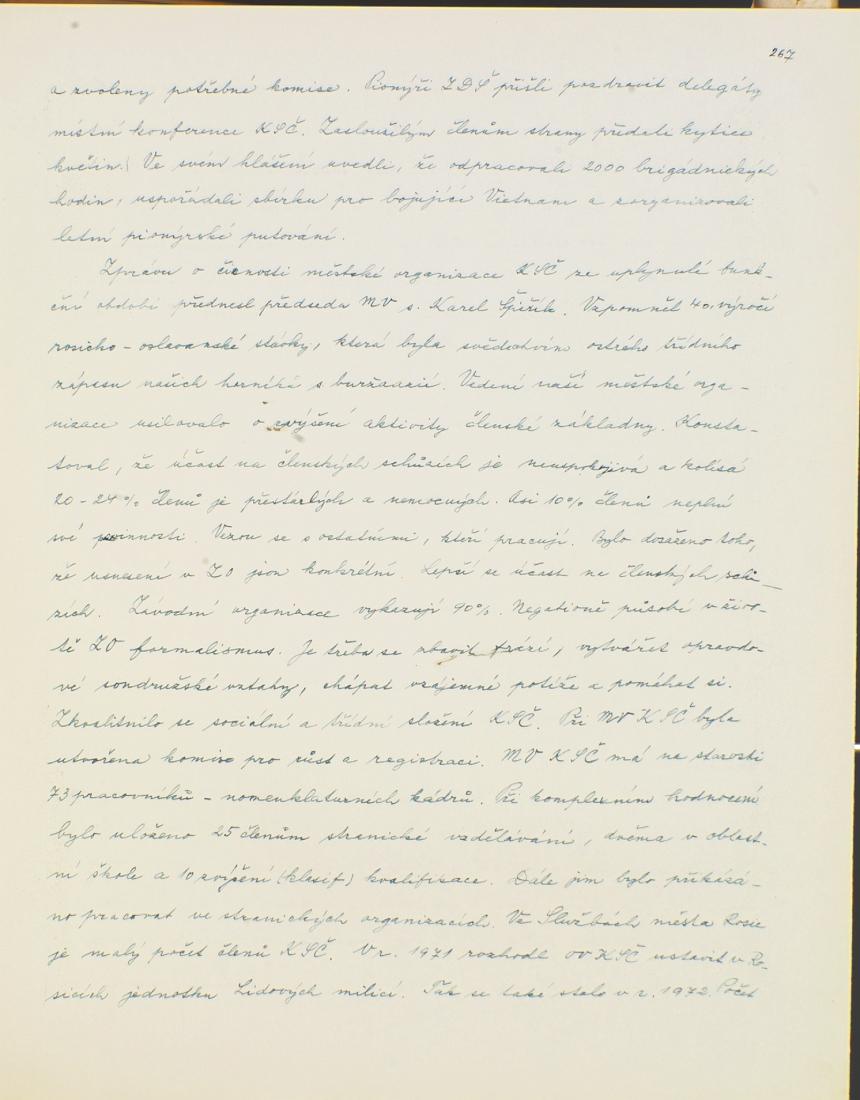 267
a zvoleny potřebné komise. Pionýři ZDŠ přišli pozdravit delegáty
místní konference KSČ. Zasloužilým členům strany předali kytice
květin. Ve svém hlášení uvedli, že odpracovali 2000 brigádnických
hodin, uspořádali sbírku pro bojující Vietnam a zorganizovali
letní pionýrské putování.
Zprávu o činnosti městské organizace KSČ ze uplynulé funk-
ční období přednesl předseda MV s. Karel . Vzpomněl 40. výročí
rosicko - oslavanské stávky, která byla svědectvím ostrého třídního
zápasu našich horníků s buržoazií. Vedení naší městské orga-
nizace usilovalo o zvýšení aktivity členské základny. Konsta-
toval, že účast na členských schůzích je neuspokojivá a kolísá
20 - 24% členů je přestárlých a nemocných. Asi 10% členů neplní
své povinnosti. Vezou se s ostatními, kteří pracují. Bylo dosaženo toho,
že usnesení v ZO jsou konkrétní. Lepší se účast na členských schů-
zích. Závodní organizace vykazují 90%. Negativně působí v živo-
tě ZO formalismus. Je třeba se zbavit frází, vytvářet opravdo-
vé soudružské vztahy, chápat vzájemné potíže a pomáhat si.
Zkvalitnilo se sociální a třídní složení KSČ. Při MV KSČ byla
utvořena komise pro růst a registraci. MV KSČ má na starosti
73 pracovníků - nomenklaturních kádrů. Při komplexním hodnocení
bylo uloženo 25 členům stranické vzdělávání, dvěma v oblast-
ní škole a 10 zvýšení (klasif) kvalifikace. Dále jim bylo přikázá-
no pracovat ve stranických organizacích. Ve Službách města Rosic
je malý počet členů KSČ. V r. 1971 rozhodl OV KSČ ustavit v Ro-
sicích jednotku Lidových milicí. Tak se také stalo v r. 1972. Počet